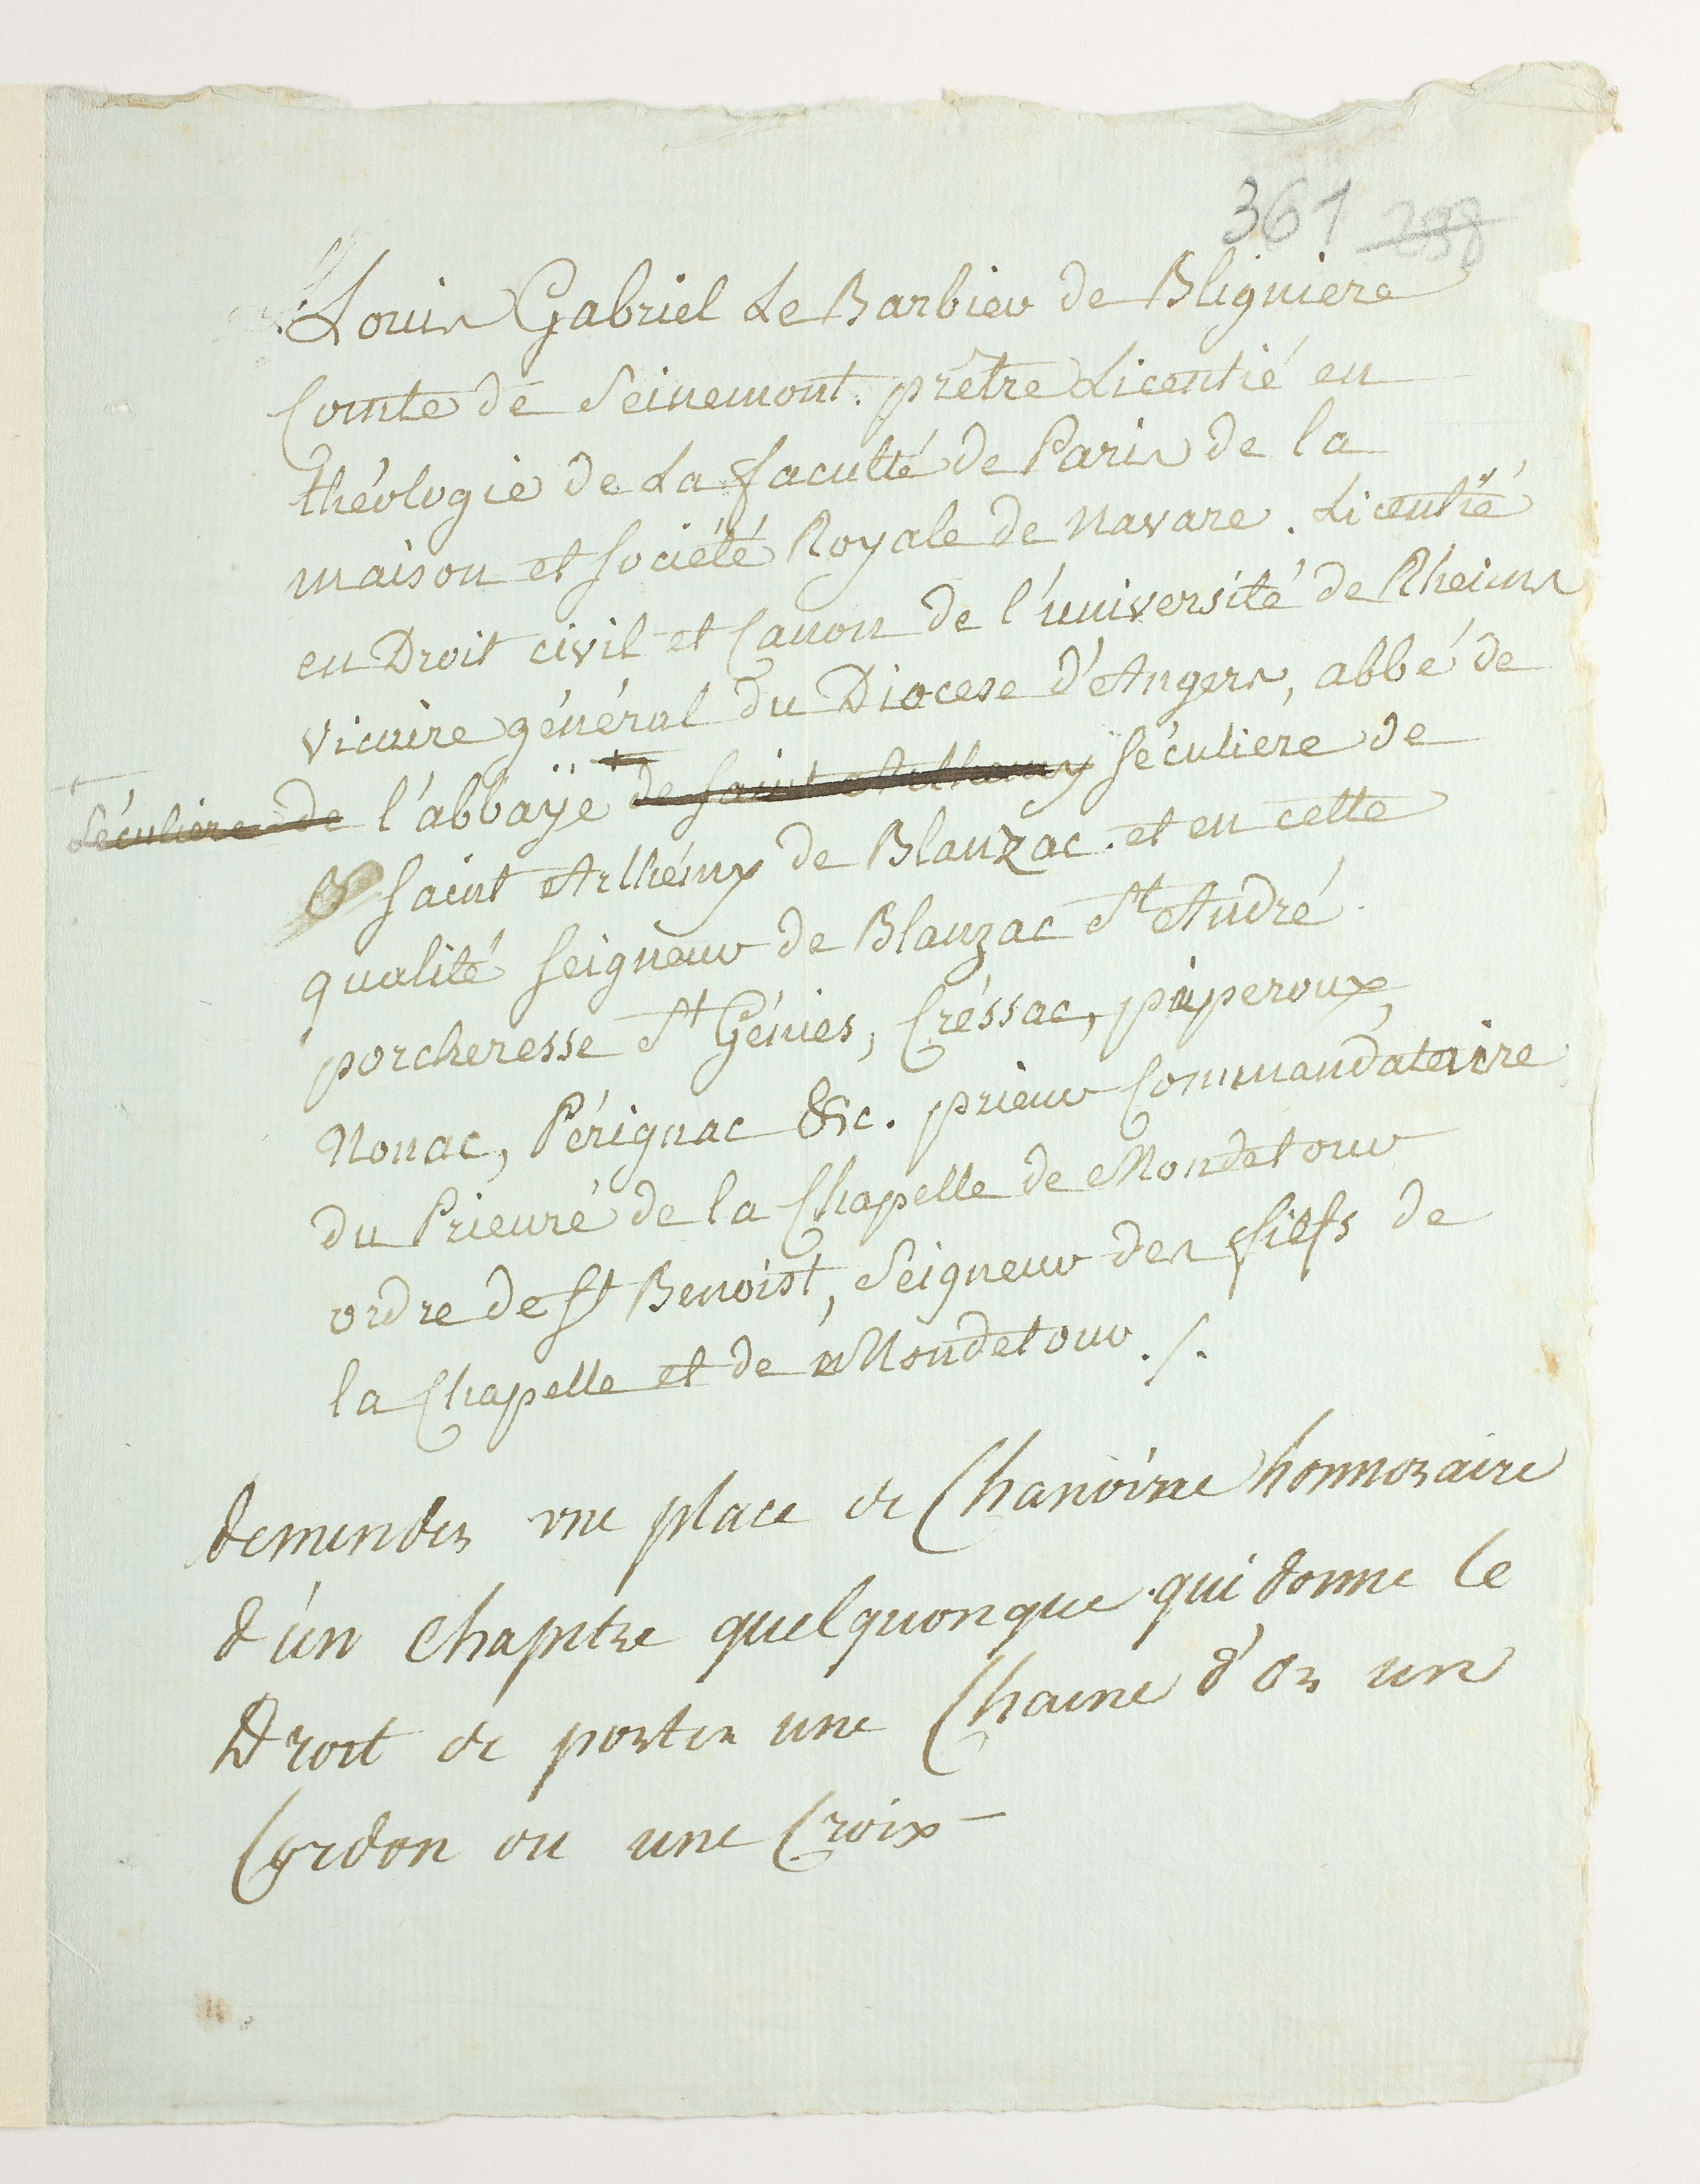 361 298
Louis Gabriel Le Barbier de Bligniere
Comte de Seinemont. prêtre Licentié en
théologie de La faculté de Paris de la
maison et société Royale de Navare. Licentié
en Droit civil et Canon de l'université de Rheims
vicaire général du Diocese d'Angers, abbé de
séculiere de l'abbaÿe de saint Arthemy séculiere de
saint Arthémy de Blanzac. et en cette
qualité seigneur de Blanzac St André
porcheresse St Génies, Créssac, piperoux,
Nonac, Pérignac &c. prieur Commandataire
du Prieuré de la Chapelle de Mondetour
ordre de St Benoist, Seigneur des fiefs de
la Chapelle et de Mondetour ./.
demender une place de Chanoine honnoraire
d'un Chapitre quelquonque qui donne le
Droit de porter une Chaine d'or un
Cordon ou une Croix —